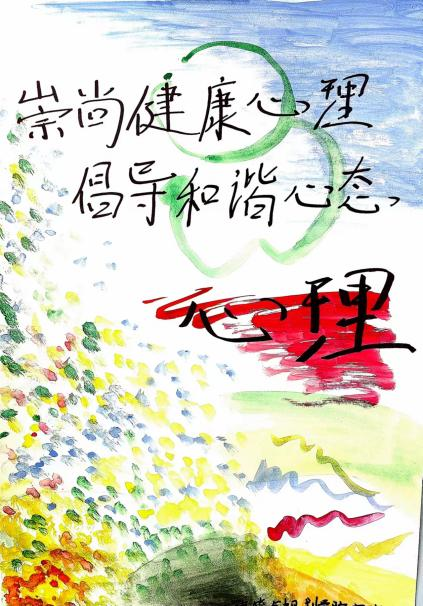 崇尚健康心理
倡导和谐心态
心理